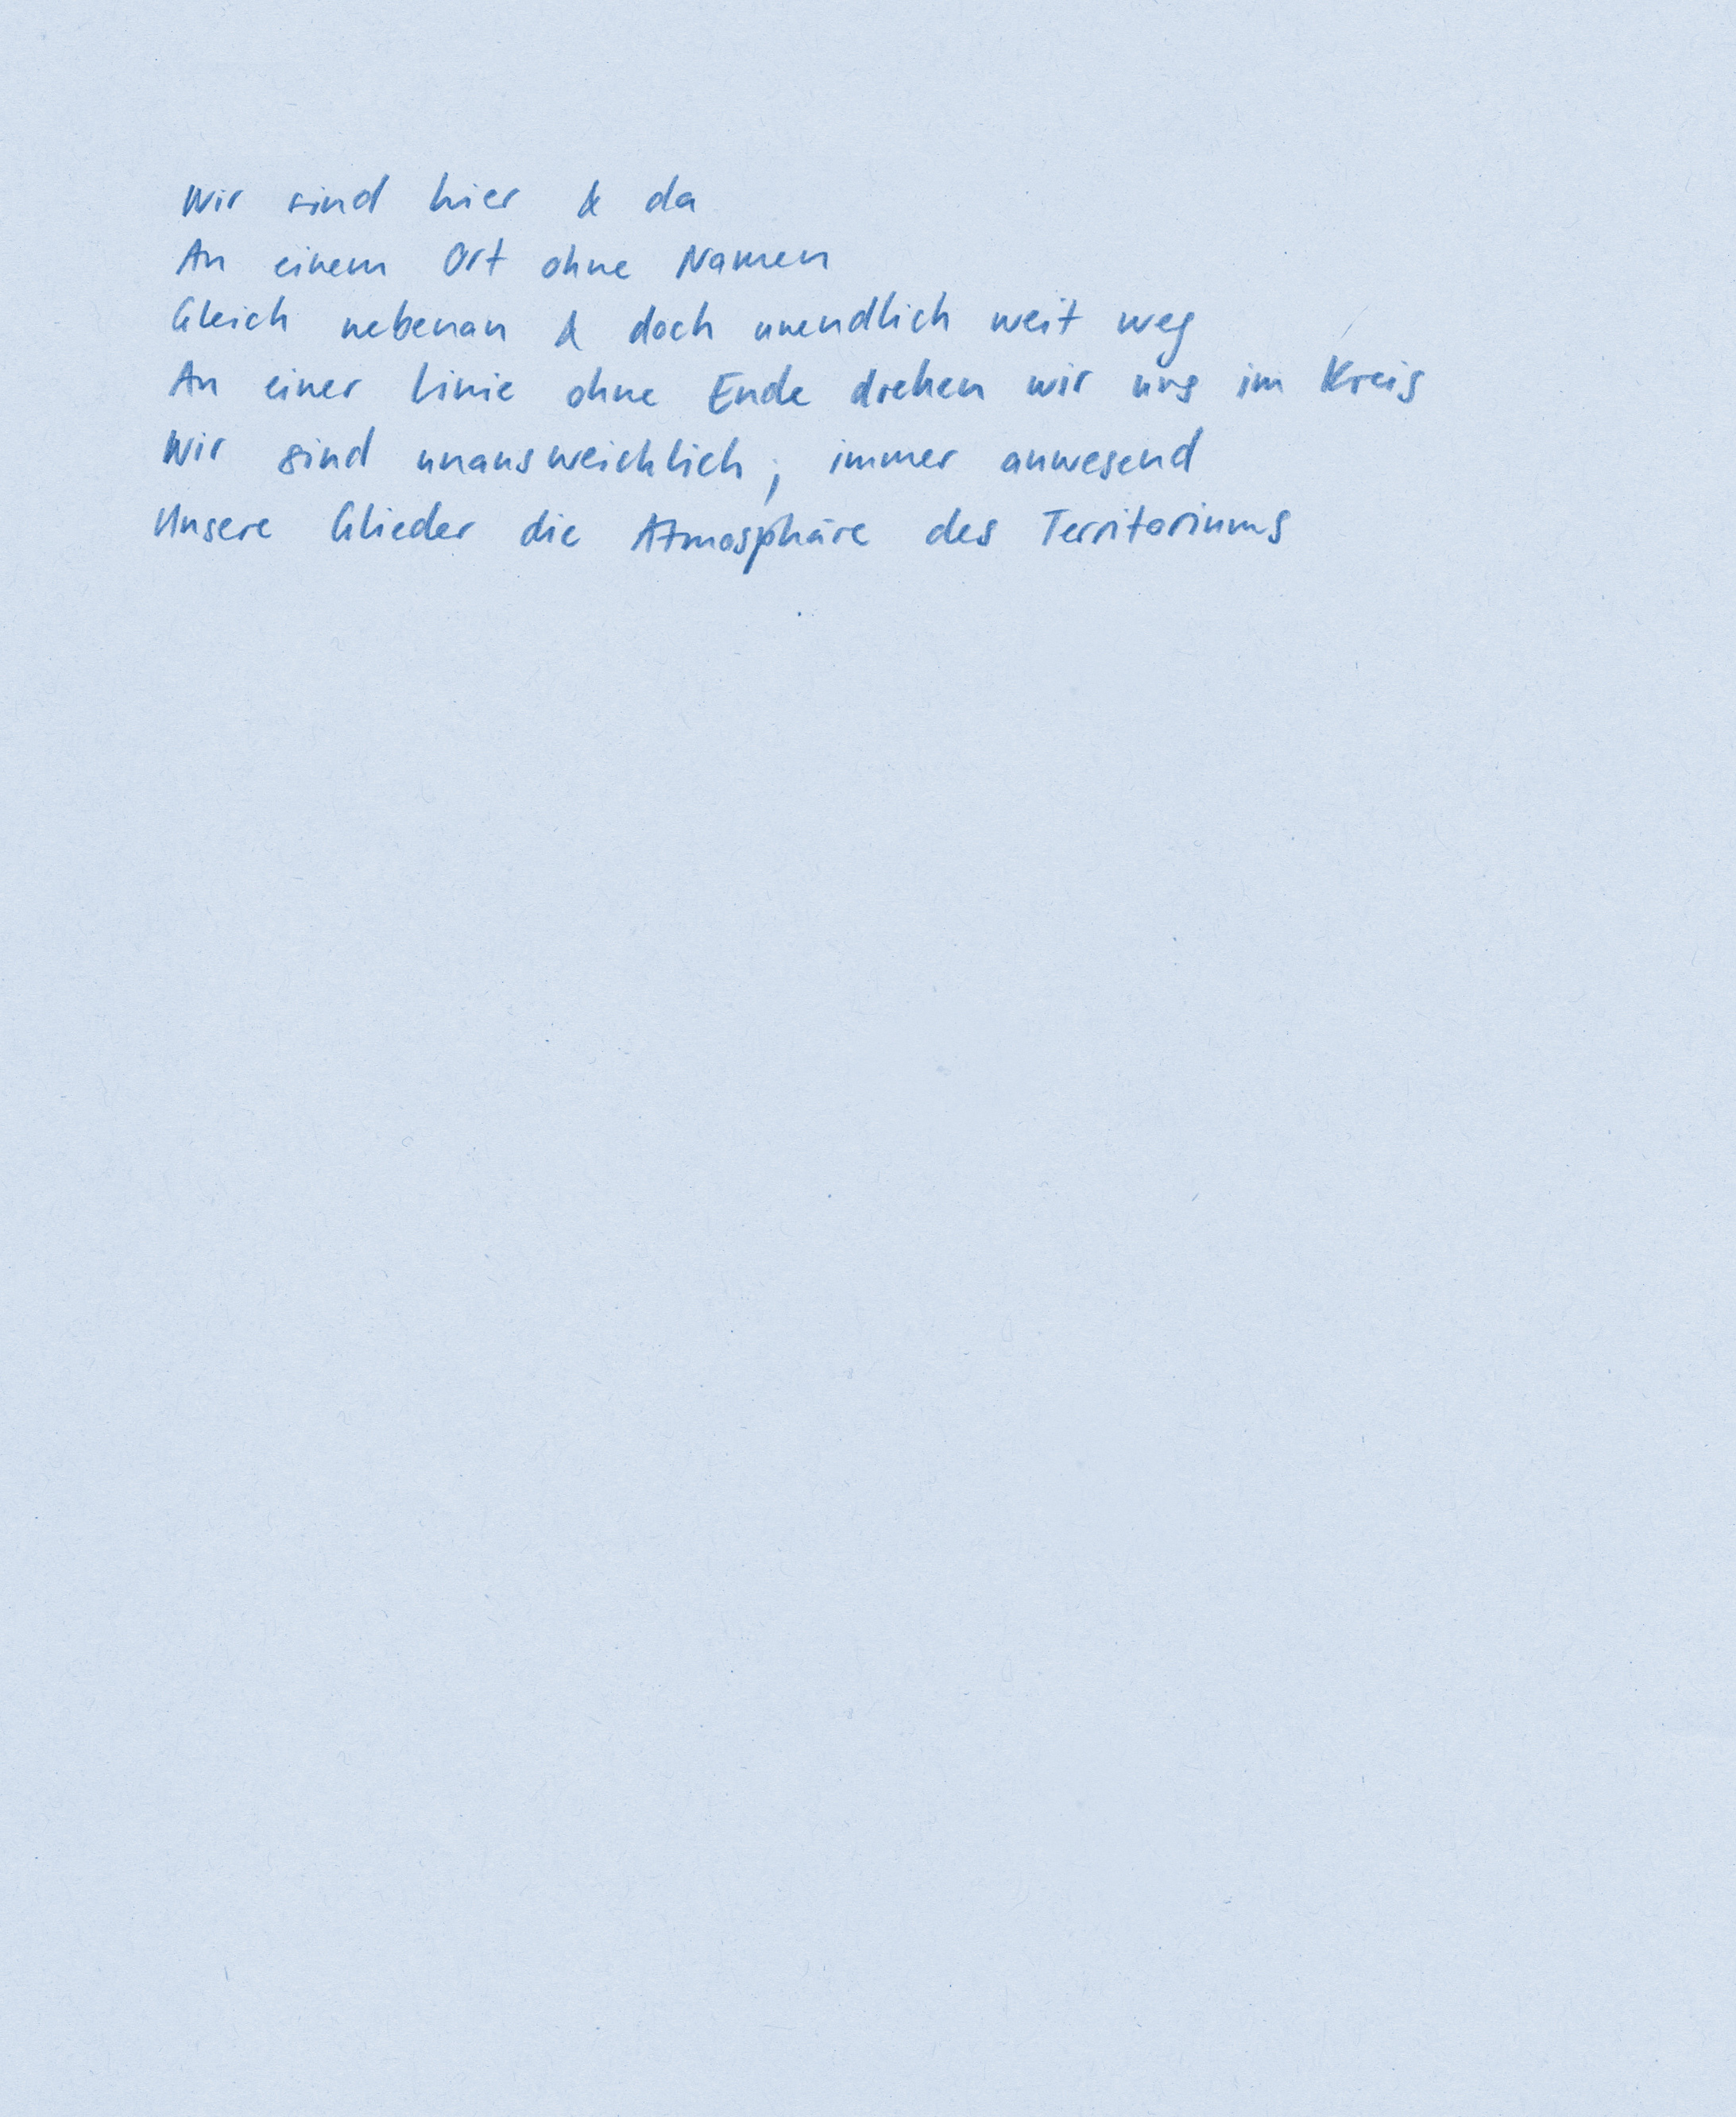 Wir sind hier & da
An einem Ort ohne Namen
Gleich nebenan & doch unendlich weit weg
An einer Linie ohne Ende drehen wir uns im Kreis
Wir sind unausweichlich, immer anwesend
Unsere Glieder die Atmosphäre des Territoriums